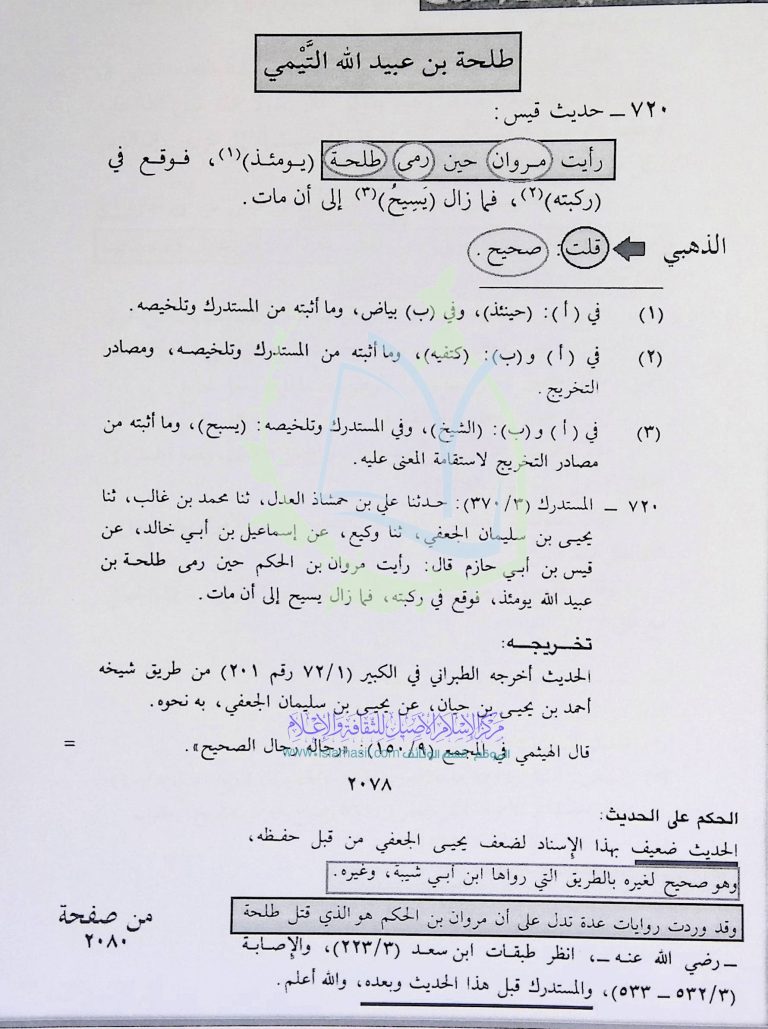 طلحة بن عبيد الله التَّيْمي
٧٢٠ ـ حديث قيس:
رأيت مروان حين رمى طلحة (يومئذ)(١)، فوقع في
(ركبته)(٢)، فما زال (يَسِيحُ)(٣) إلى أن مات.
الذهبي قلت: صحيح.
(١) في (أ): (حينئذ)، وفي (ب) بياض، وما أثبته من المستدرك وتلخيصه.
(٢) في (أ) و(ب): (كتفيه)، وما أثبته من المستدرك وتلخيصه، ومصادر
التخريج.
(٣) في (أ) و(ب): (الشيخ)، وفي المستدرك وتلخيصه: (يسبح)، وما أثبته من
مصادر التخريج لاستقامة المعنى عليه.
٧٢٠ ـ المستدرك (٣/٣٧٠): حدثنا علي بن حمشاذ العدل، ثنا محمد بن غالب، ثنا
يحيى بن سليمان الجعفي، ثنا وكيع، عن إسماعيل بن أبي خالد، عن
قيس بن أبي حازم قال: رأيت مروان بن الحكم حين رمى طلحة بن
عبيد الله يومئذ، فوقع في ركبته، فما زال يسيح إلى أن مات.
تخريجـه:
الحديث أخرجه الطبراني في الكبير (١/٧٢ رقم ٢٠١) من طريق شيخه
أحمد بن يحيى بن حيان، عن يحيى بن سليمان الجعفي، به نحوه.
مركز الإسلام الأصيل للثقافة والإعلام
قال الهيثمي في المجمع (٩/١٥٠): «رجاله رجال الصحيح». =
www.islamasil.com
٢٠٧٨
الحكم على الحديث:
الحديث ضعيف بهذا الإسناد لضعف يحيى الجعفي من قبل حفظه،
وهو صحيح لغيره بالطريق التي رواها ابن أبي شيبة، وغيره.
وقد وردت روايات عدة تدل على أن مروان بن الحكم هو الذي قتل طلحة
ـ رضي الله عنه ـ، انظر طبقات ابن سعد (٣/٢٢٣)، والإصابة
(٣/٥٣٢ ـ ٥٣٣)، والمستدرك قبل هذا الحديث وبعده، والله أعلم.
من صفحة
٢٠٨٠